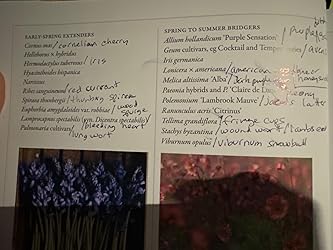 EARLY-SPRING EXTENDERS
Cornus mas / cornelian cherry
Helleborus × hybridus
Hermodactylus tuberosus / iris
Hyacinthoides hispanica
Narcissus
Ribes sanguineum red currant
Spiraea thunbergii / thunbergs spirea
Euphorbia amygdaloides var. robbiae / wood spurge
Lamprocapnos spectabilis (syn. Dicentra spectabilis)
Pulmonaria cultivars / bleeding heart
lungwort
SPRING TO SUMMER BRIDGERS
Allium hollandicum 'Purple Sensation' purple
Geum cultivars, eg Cocktail and Tempest series / avens
Iris germanica
Lonicera × americana / american
Melica altissima 'Alba'
Paeonia hybrids and P. 'Claire de Lune' / peony
Polemonium 'Lambrook Mauve' / Jacobs ladder
Ranunculus acris 'Citrinus'
Tellima grandiflora / fringe cups
Stachys byzantina / wound wort / lambs ear
Viburnum opulus / viburnum snowball